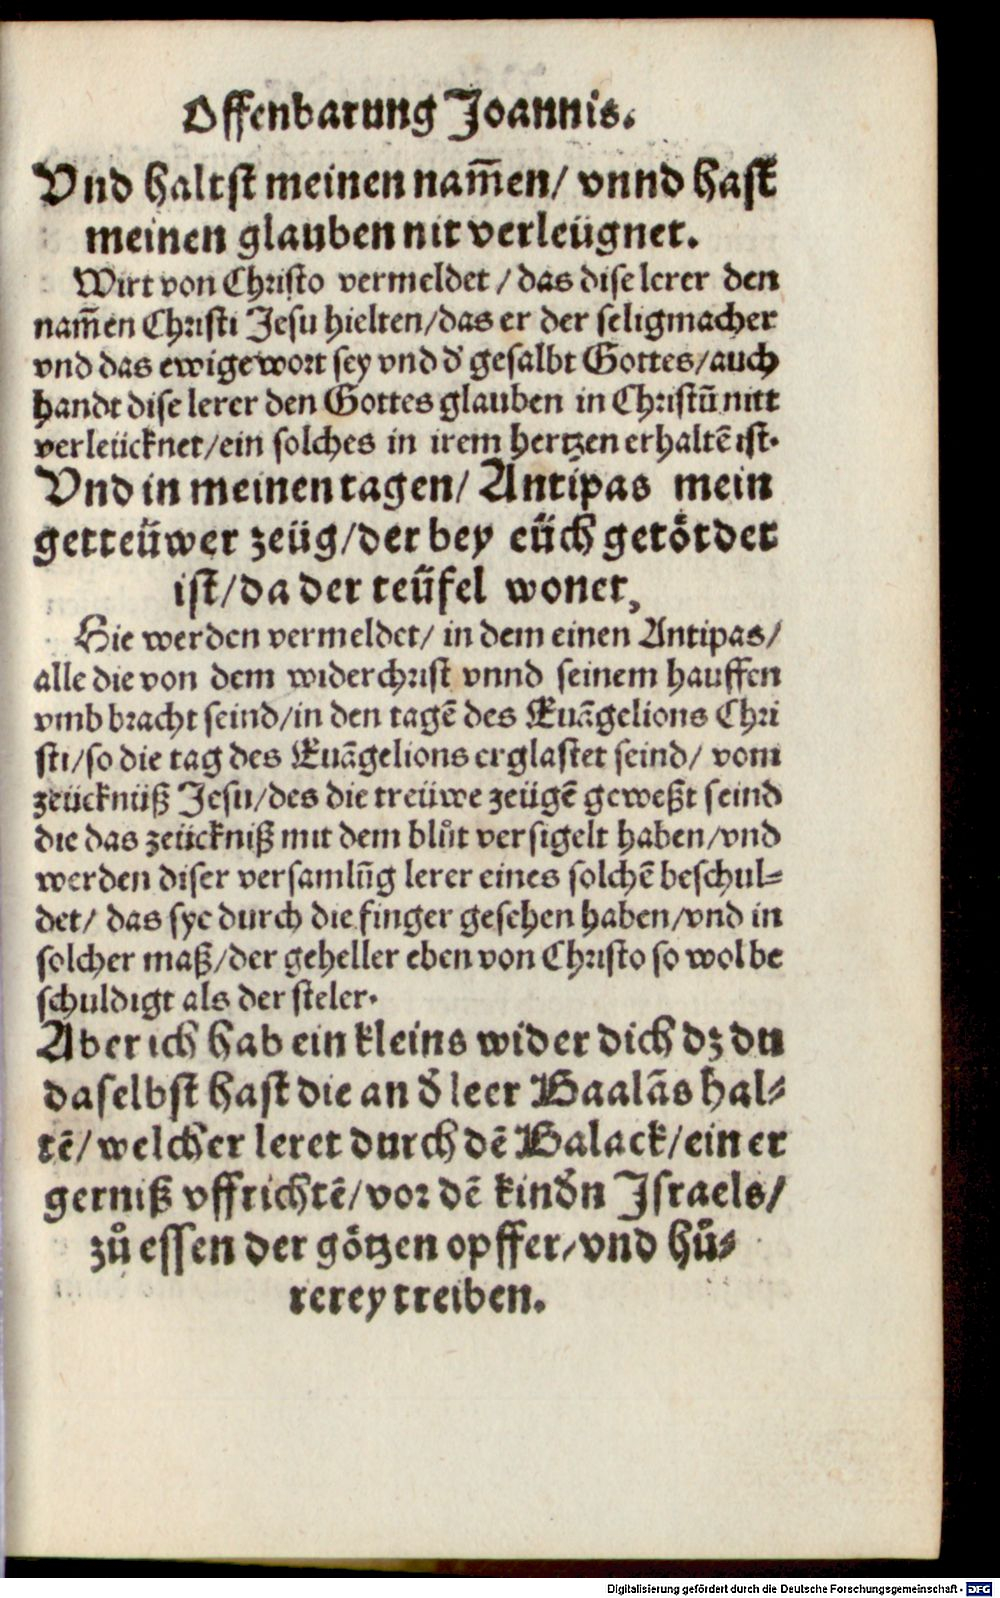 Offenbarung Joannis.
Vnd haltst meinen nam̅en/ vnnd hast
meinen glauben nit verleügnet.
Wirt von Christo vermeldet / das dise lerer den
nam̅en Christi Jesu hielten/das er der seligmacher
vnd das ewige wort sey vnd d' gesalbt Gottes/auch
handt dise lerer den Gottes glauben in Christū nitt
verleücknet/ein solches in irem hertzen erhaltē ist.
Vnd in meinen tagen/ Antipas mein
getteüwer zeüg/der bey eüch getötdet
ist/da der teüfel wonet,
Hie werden vermeldet/ in dem einen Antipas/
alle die von dem widerchrist vnnd seinem hauffen
vmb bracht seind/in den tagē des Euāgelions Chri
sti/so die tag des Euāgelions erglastet seind/ vom
zeücknüß Jesu/des die treüwe zeügē geweßt seind
die das zeückniß mit dem blůt versigelt haben/vnd
werden diser versamlūg lerer eines solchē beschul⸗
det/ das sye durch die finger gesehen haben/vnd in
solcher maß/der geheller eben von Christo so wol be
schuldigt als der steler.
Aber ich hab ein kleins wider dich dz du
daselbst hast die an d̕ leer Baalās hal⸗
tē/welcher leret durch dē Balack/ein er
gerniß vffrichtē/vor dē kind̕n Israels/
zů essen der götzen opffer/vnd hů⸗
rerey treiben.
Digitalisierung gefördert durch die Deutsche Forschungsgemeinschaft - DFG